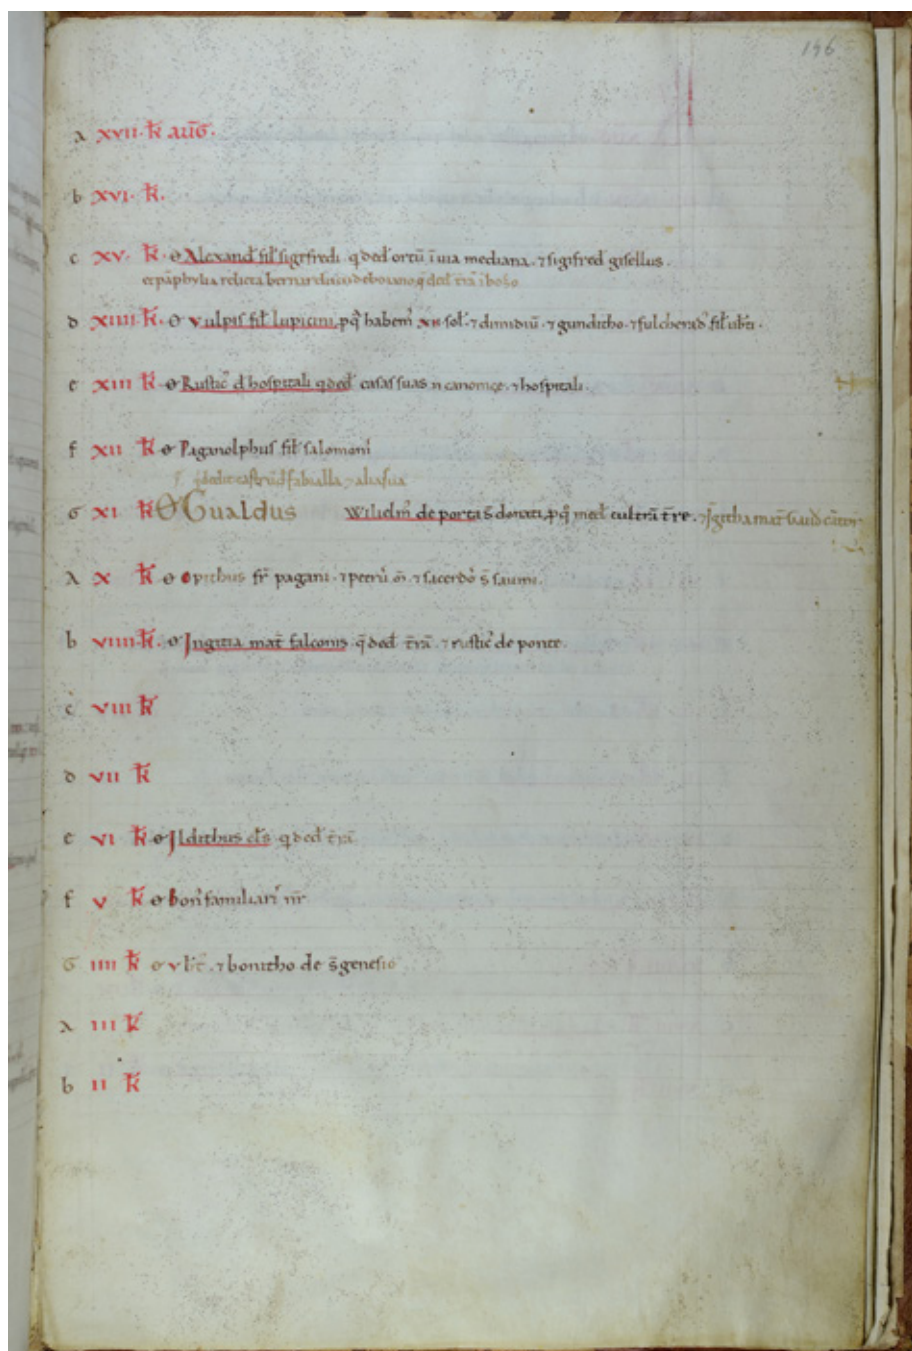 146
a XVII · k̄ aug̅ ·
b XVI · k̄ ·
c XV · k̄ · Θ Alexand̅ fil̅ sigefredi · q̅ ded̅ ortū ī uia mediana · ⁊ sigifred̅ gisellus ·
et pāphylia relicta bernardini de q̅ ded̅ t̅rā ī
d XIIII · k̄ · Θ Vulpis fil̅ lupicini, p q̅ habem᾽ XII · sol̅ · ⁊ dimidiū · ⁊ gunditho · ⁊ fulcherad᾽ fil̅ ub̅ti ·
e XIII k̄ Θ Rustic᾽ d̅ hospitali q̅ ded̅ casas suas n̅ canonicę · ⁊ hospitali ·
f XII k̄ Θ Paganolphus fil̅ salomoni᾽
q̅ dedit castrū d̅ fabialla ⁊ alia sua
G XI k̄ Θ Gualdus Wilielm᾽ de porta s̅ donati, p q̅ med̅ cultrā t̅re · ⁊ Igitha mat̅
a X k̄ Θ Opithus fr̅ pagani · ⁊ petru᾽ m̅ · ⁊ sacerdo᾽ s̅
b VIIII · k̄ · Θ Ingitia mat̅ falconis q̅ ded̅ t̅rā · ⁊ rustic᾽ de ponte ·
c VIII k̄
d VII k̄
e VI k̄ Θ Ildithus cl̅s q̅ ded̅ t̅rā
f V k̄ Θ bon᾽ familiari᾽ n̅r
G IIII k̄ Θ Vb̅t᾽ · ⁊ bonitho de s̅ genesio
a III k̄
b II k̄